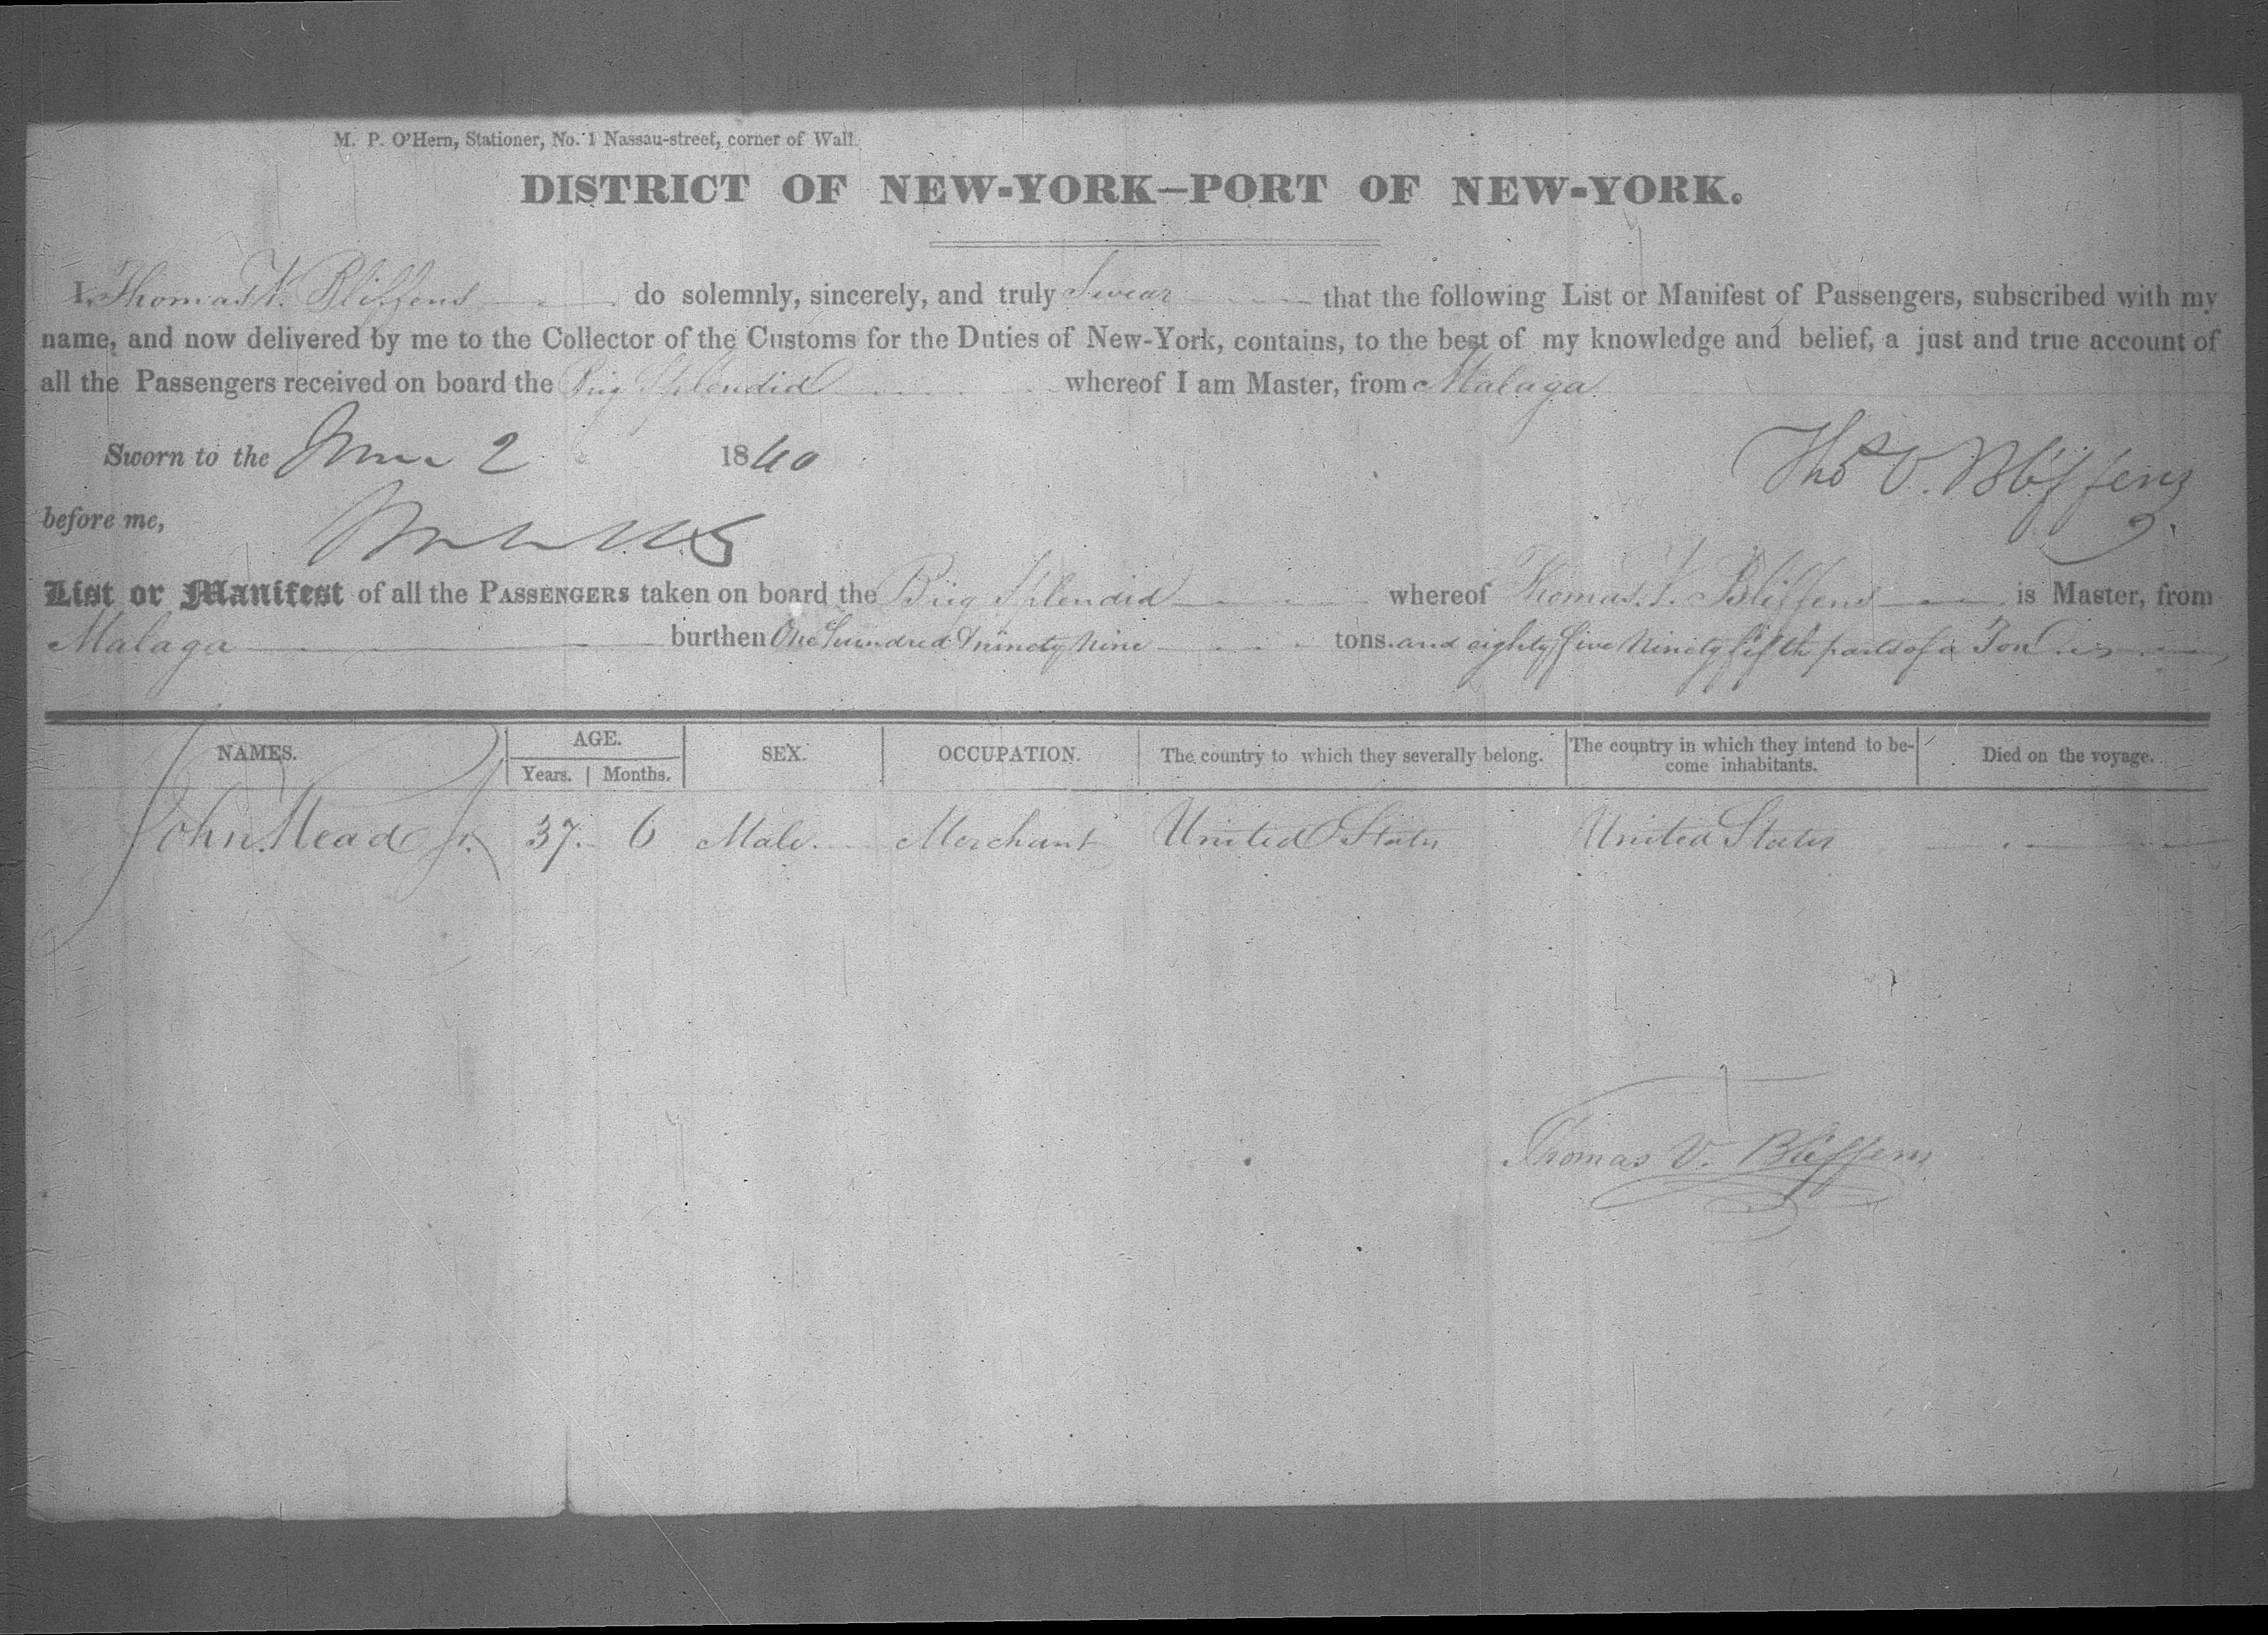 M. P. O'Hern, Stationer, No. 1 Nassau-street, corner of Wall.
DISTRICT OF NEW-YORK—PORT OF NEW-YORK.
I, Thomas V. Bliffens do solemnly, sincerely, and truly Swear that the following List or Manifest of Passengers, subscribed with my
name, and now delivered by me to the Collector of the Customs for the Duties of New-York, contains, to the best of my knowledge and belief, a just and true account of
all the Passengers received on board the Brig Splendid whereof I am Master, from Malaga
Sworn to the June 2 1840
Thos V. Bliffens
before me,
List or Manifest of all the PASSENGERS taken on board the Brig Splendid whereof Thomas V. Bliffens is Master, from
Malaga burthen One hundred & ninety nine tons and eighty five Ninety fifth parts of a Ton
NAMES. AGE. Years. Months. SEX. OCCUPATION. The country to which they severally belong. The country in which they intend to be-come inhabitants. Died on the voyage.
John Mead Jr. 37 6 Male Merchant United States United States
Thomas V. Bliffens